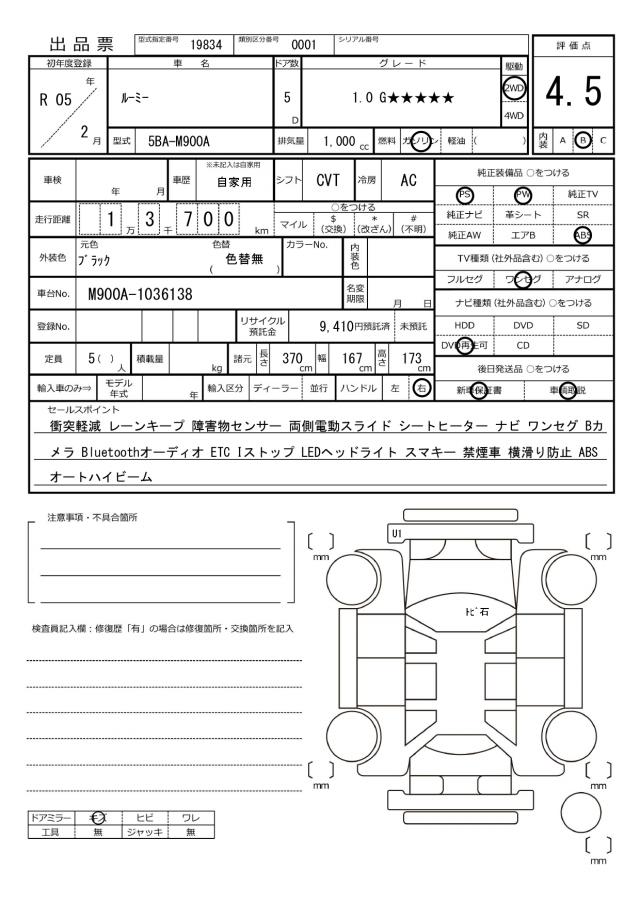 出品票 型式指定番号 19834 類別区分番号 0001 シリアル番号
評価点
4.5
内装 A B C
初年度登録 車名 ドア数 グレード 駆動
R 05 年 2 月
ルーミー 5 D 1.0 G★★★★★ 2WD
4WD
型式 5BA-M900A 排気量 1,000 cc 燃料 ガソリン 軽油 ( )
車検 年 月 車歴 ※未記入は自家用 自家用 シフト CVT 冷房 AC
走行距離 1 万 3 千 7 0 0 km
○をつける
マイル $ (交換) * (改ざん) # (不明)
外装色 元色 ブラック 色替 ( 色替無 ) カラーNo. 内装色
車台No. M900A-1036138 名変期限 月 日
登録No. リサイクル預託金 9,410円預託済 未預託
定員 5( ) 人 積載量 kg 諸元 長さ 370 cm 幅 167 cm 高さ 173 cm
輸入車のみ⇒ モデル年式 年 輸入区分 ディーラー 並行 ハンドル 左 右
純正装備品 ○をつける
PS PW 純正TV
純正ナビ 革シート SR
純正AW エアB ABS
TV種類 (社外品含む) ○をつける
フルセグ ワンセグ アナログ
ナビ種類 (社外品含む) ○をつける
HDD DVD SD
DVD再生可 CD
後日発送品 ○をつける
新車保証書 車輌取説
セールスポイント
衝突軽減 レーンキープ 障害物センサー 両側電動スライド シートヒーター ナビ ワンセグ Bカ
メラ Bluetoothオーディオ ETC Iストップ LEDヘッドライト スマキー 禁煙車 横滑り防止 ABS
オートハイビーム
注意事項・不具合箇所
検査員記入欄：修復歴「有」の場合は修復箇所・交換箇所を記入
U1
[ ] mm
[ ] mm
トビ石
[ ] mm
[ ] mm
[ ] mm
ドアミラー キズ ヒビ ワレ
工具 無 ジャッキ 無